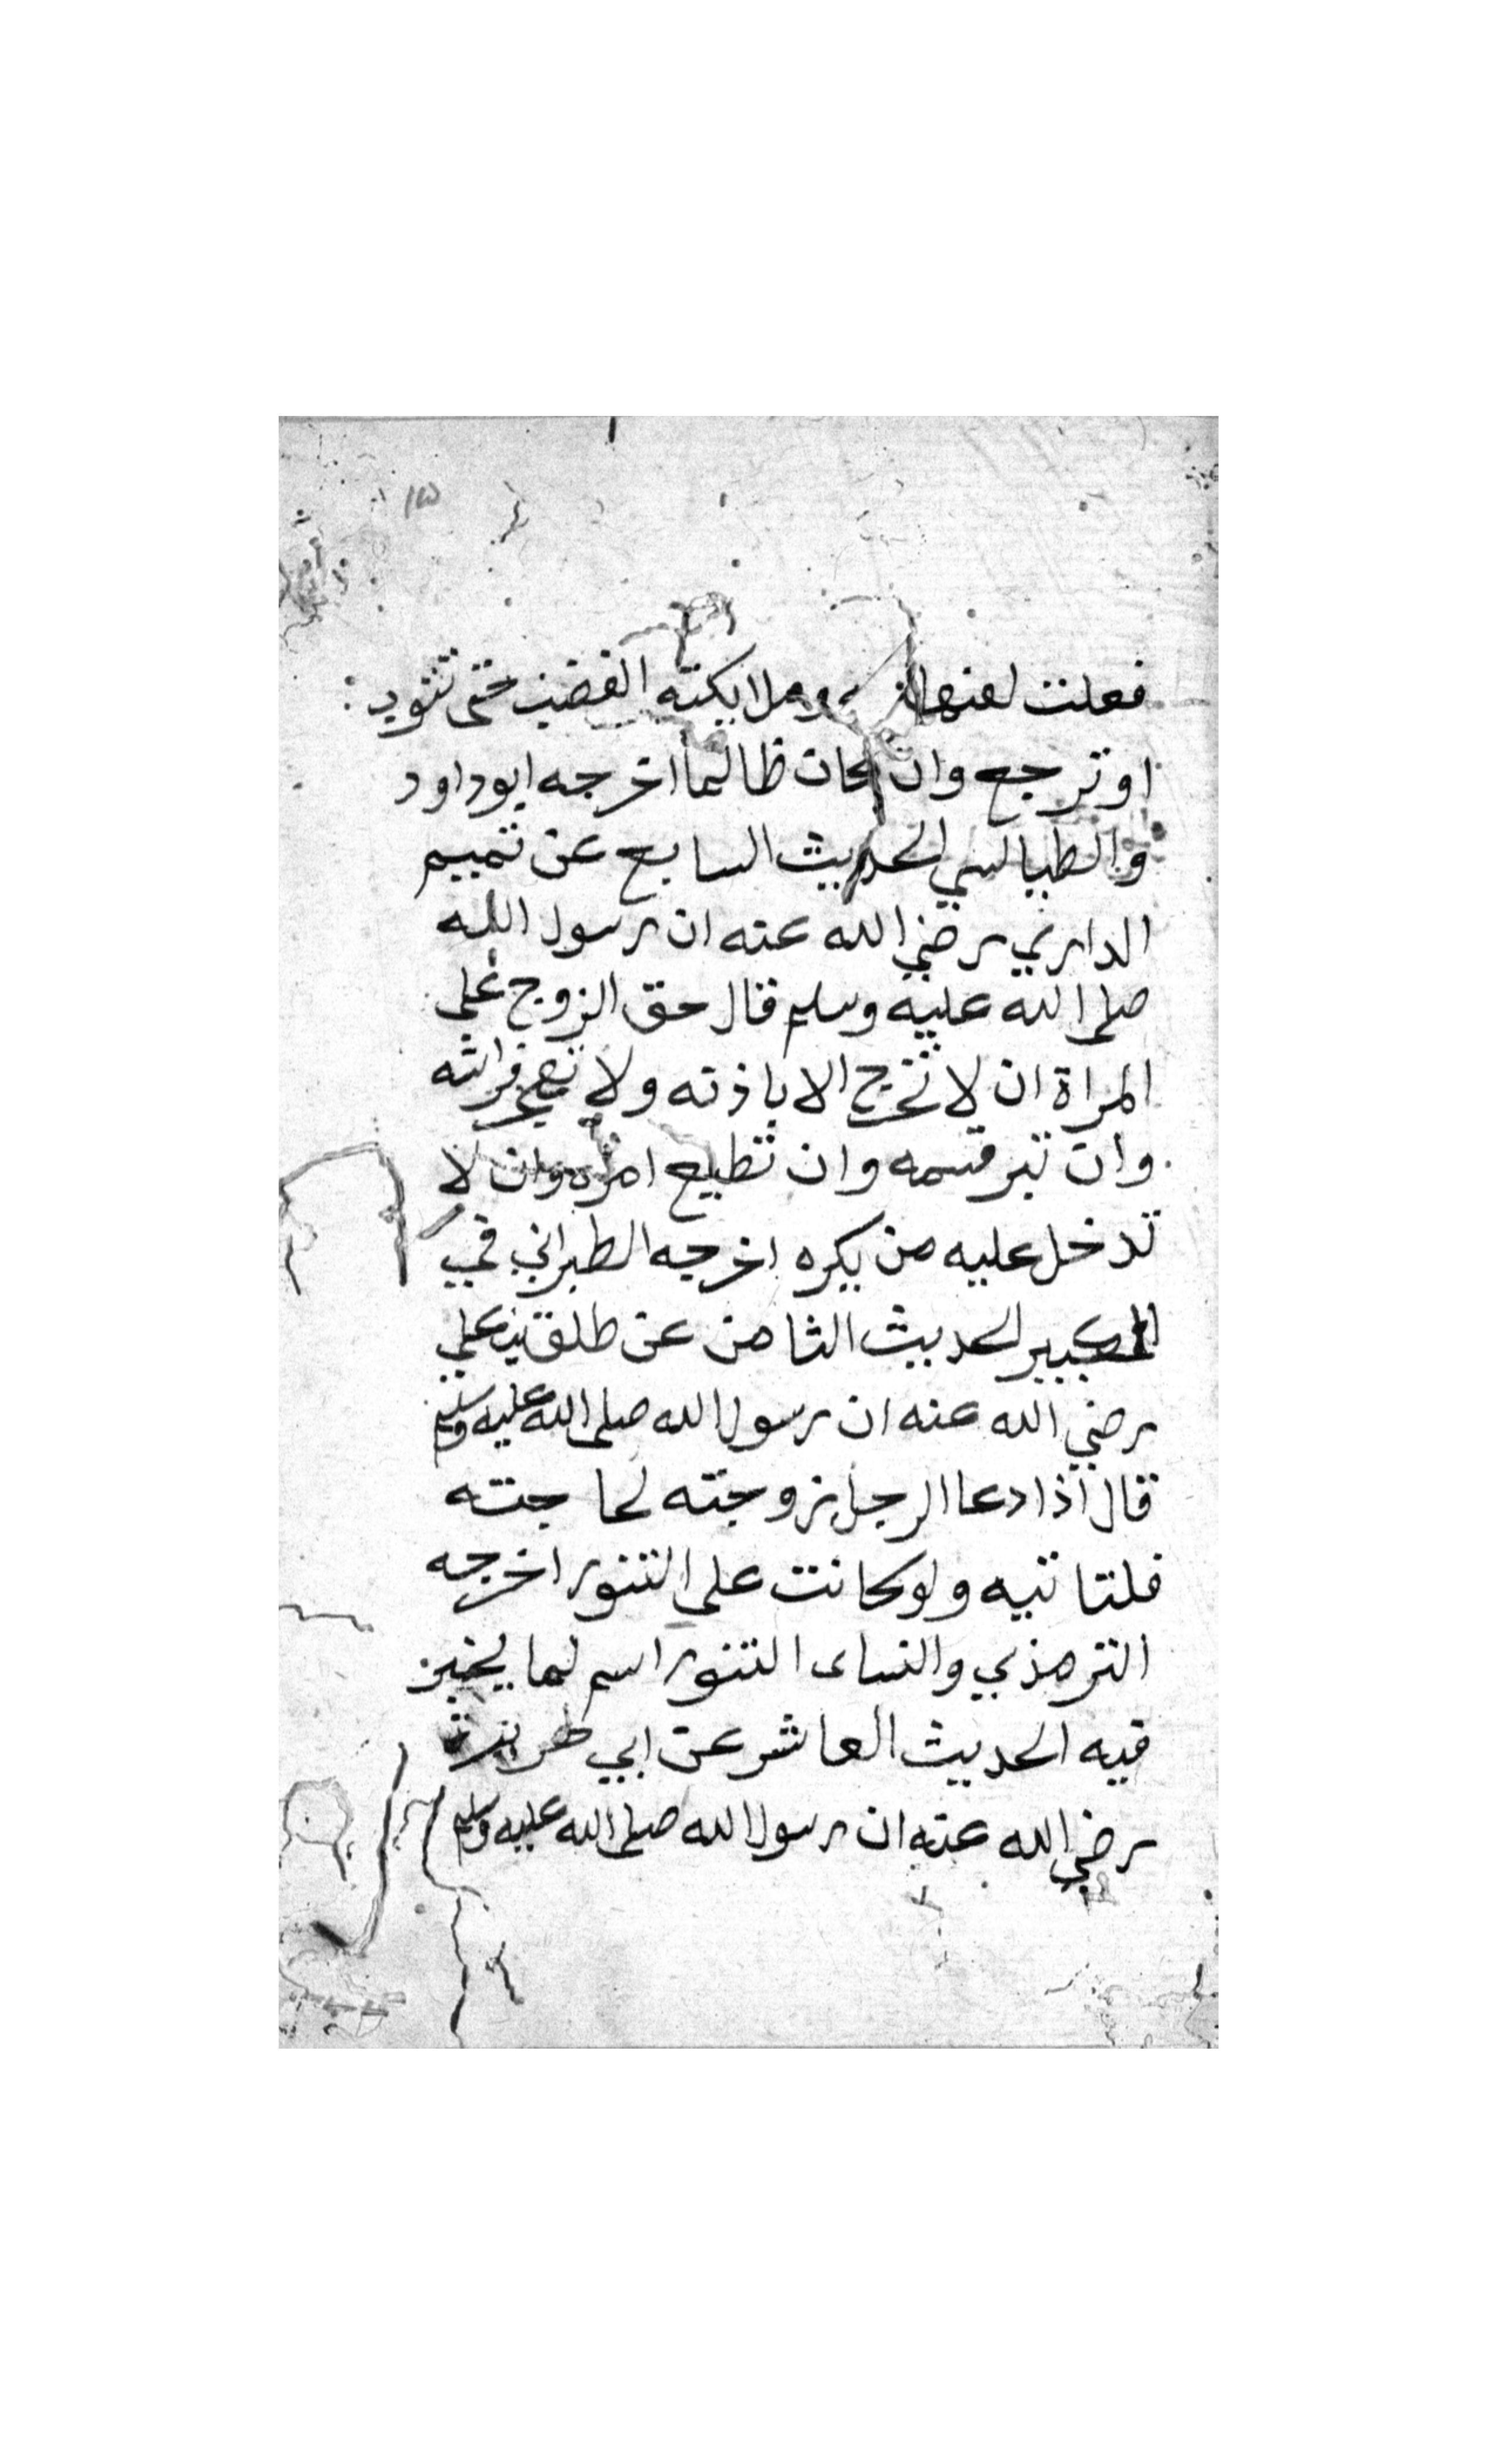 فعلت لعنها وملايكته الغضب حتى تتوب
او ترجع وان كان ظالما اخرجه ابوداود
والطيالسي الحديث السابع عن تميم
الداري رضي الله عنه ان رسول الله
صلى الله عليه وسلم قال حق الزوج على
المراة ان لا تخرج الا باذنه ولا تهجر فراشه
وان تبر قسمه وان تطيع امره وان لا
تدخل عليه من يكره اخرجه الطبراني في
الكبير الحديث الثامن عن طلق بن علي
رضي الله عنه ان رسول الله صلى الله عليه وسلم
قال اذا دعا الرجل زوجته لحاجته
فلتاتيه ولو كانت على التنور اخرجه
الترمذي والنساى التنور اسم لما يخبز
فيه الحديث العاشر عن ابي هريرة
رضي الله عنه ان رسول الله صلى الله عليه وسلم